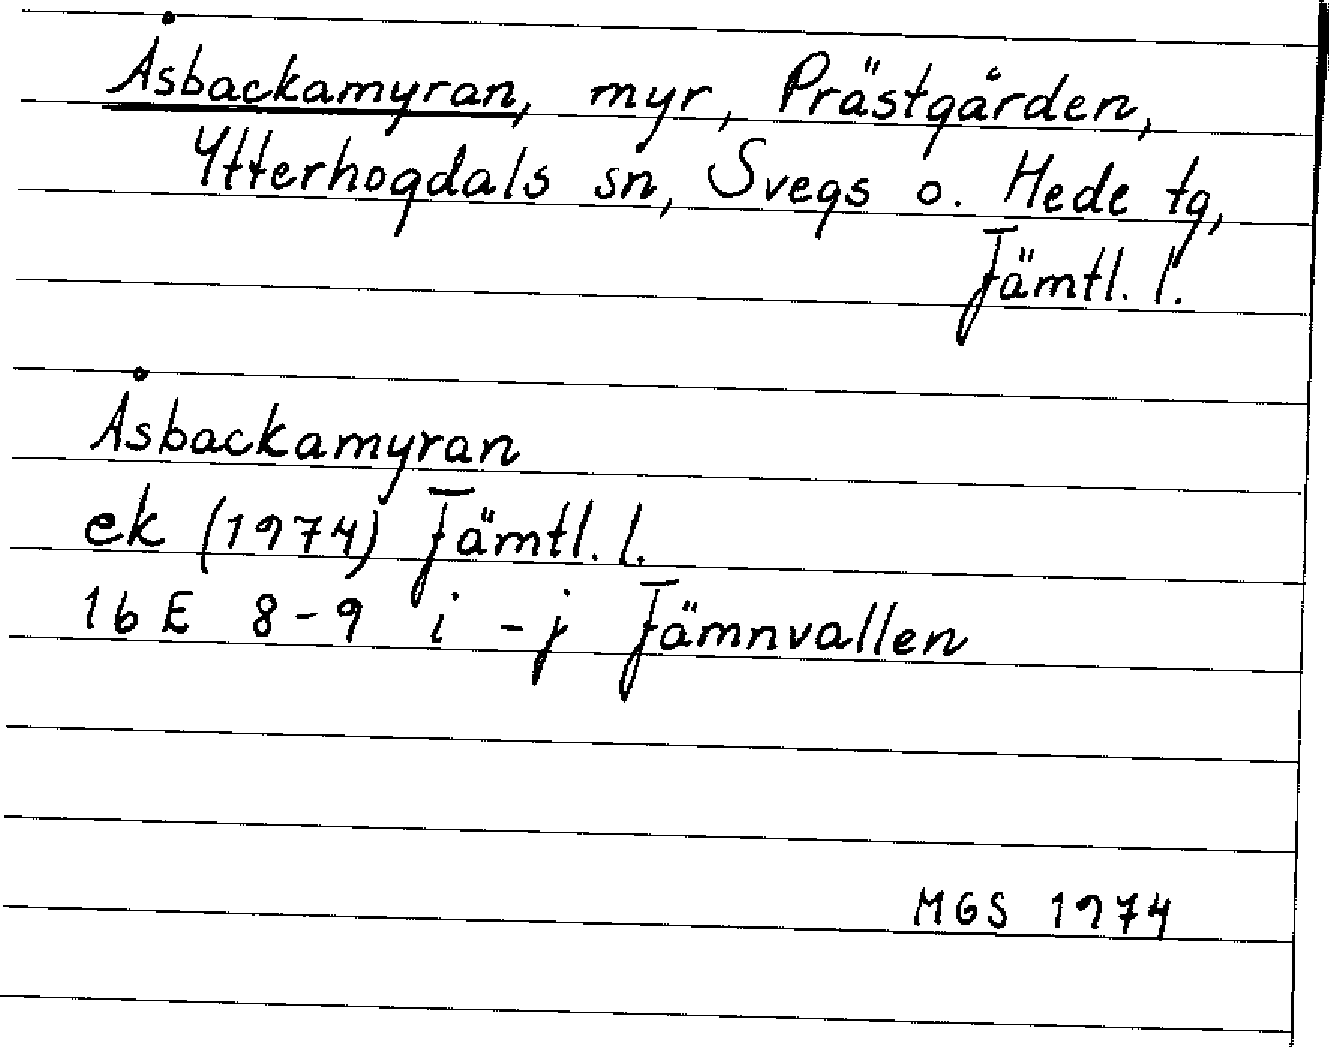 Åsbackamyran, myr, Prästgården,
Ytterhogdals sn, Svegs o. Hede tg,
Jämtl. l.
Åsbackamyran
ek (1974) Jämtl. l.
16 E 8-9 i - j Jämnvallen
MGS 1974